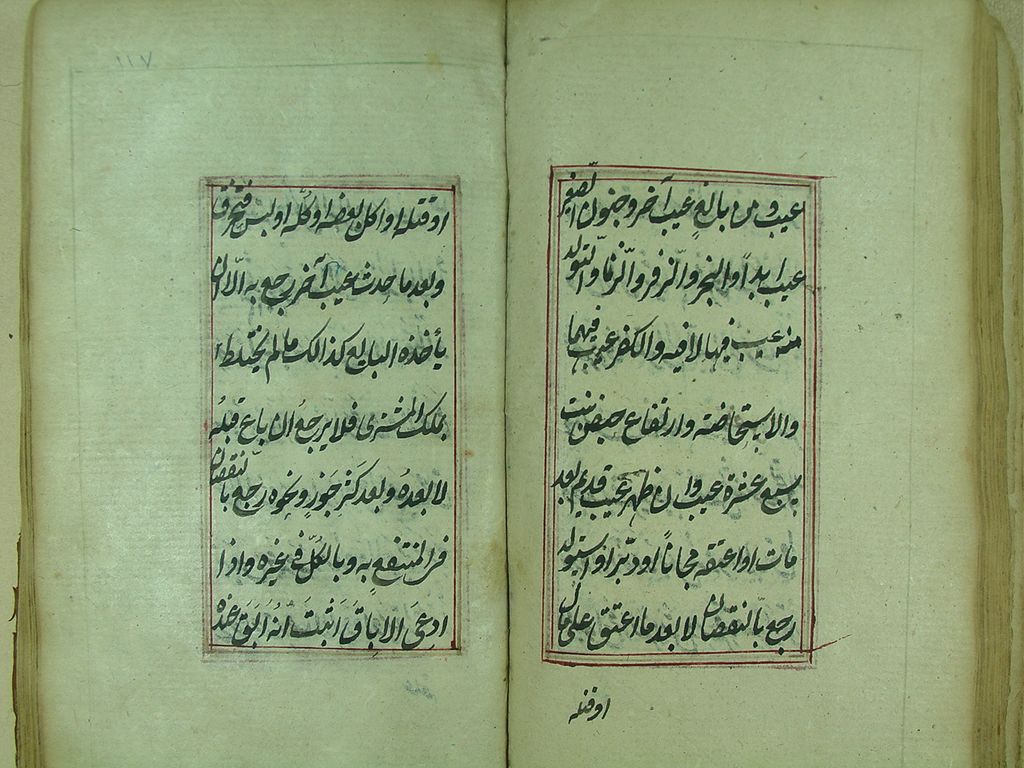 عيب ومن بالغ عيب آخر وجنون الصغير
عيب ابداً والبخر والزفر والزنا والتولد
منه عيب فيها لا فيه والكفر عيب فيهما
والاستحاضة وارتفاع حيض بنت
سبع عشرة عيب وان ظهر عيب قديم بعد
مامات او اعتقه مجاناً او دبّر او استولد
رجع بالنقصان لا بعد ما اعتق على مال
او قتله
او قتله او اكل بعضه او كلّه او لبس فتخرّق
وبعد ما حدث عيب آخر رجع به الّا ان
يأخذه البايع كذالك مالم يختلط
بملك المشترى فلا يرجع ان باع قبلهُ
لا بعدهُ وبعد كسَر جَوزٍ ونحوه رجع بالنقصان
فى المنتفع به وبالكُلّ فى غيره واذا
ادعىَ الاباقَ اَثبتَ انّهُ اَبَقَ عنده